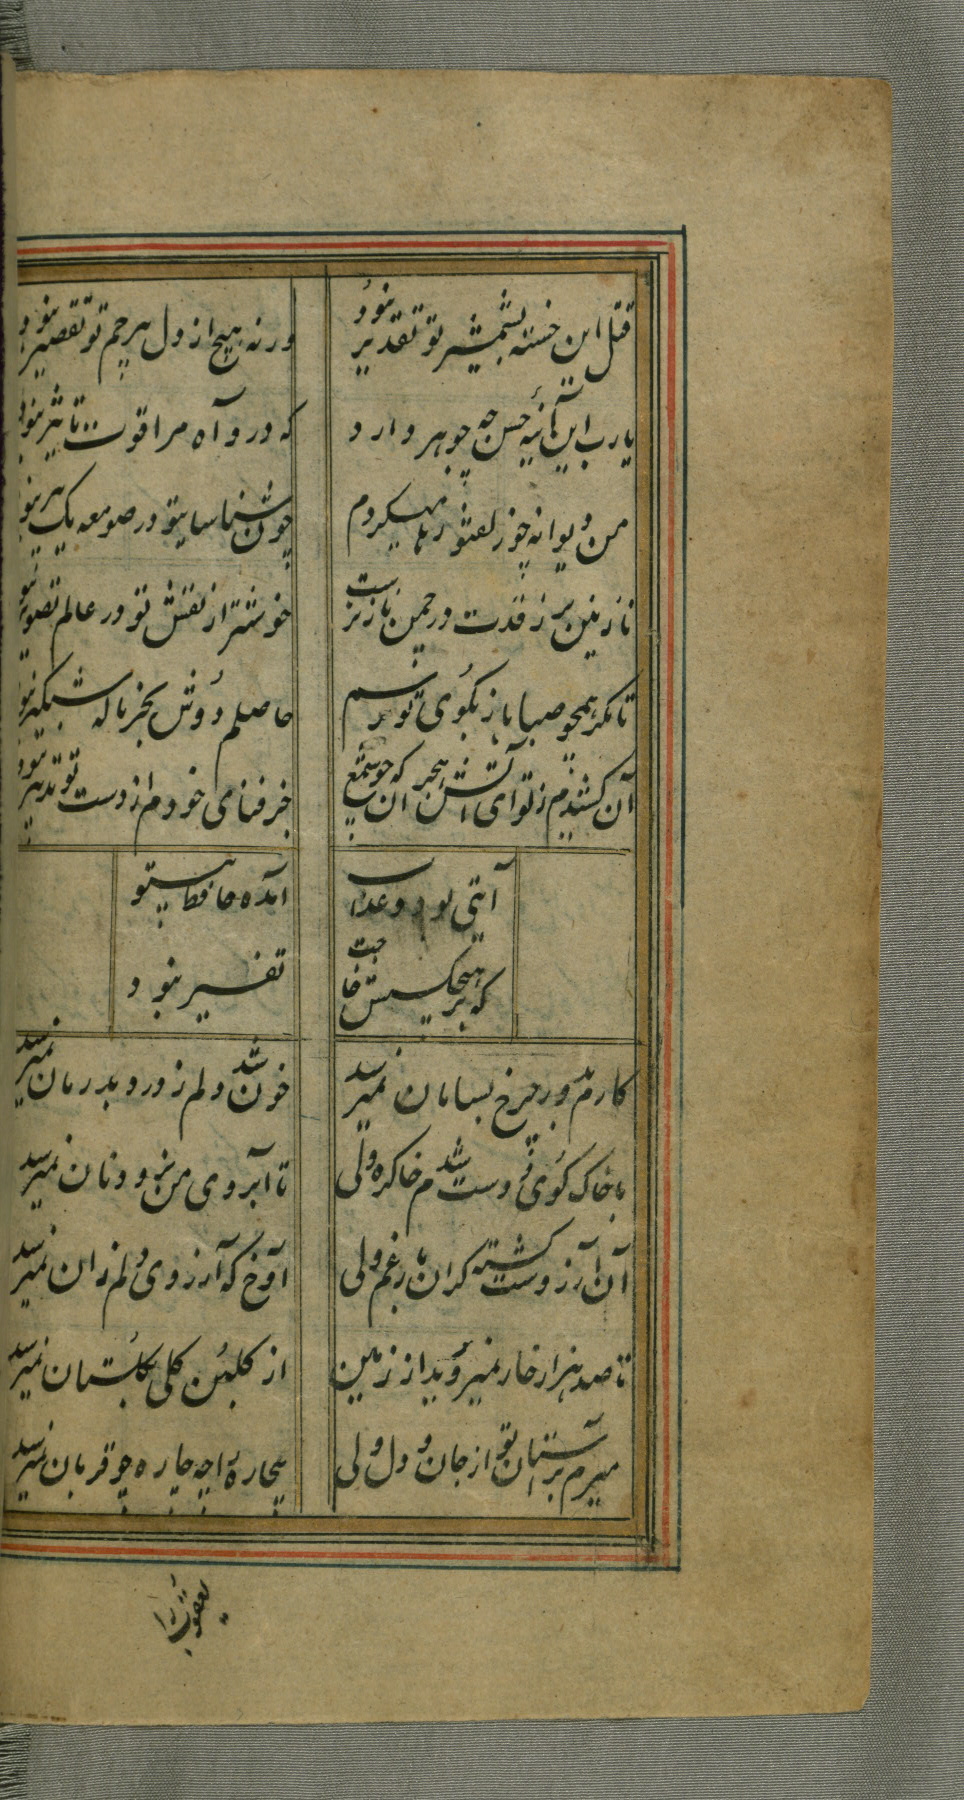 قتل این خسته بشمشیر تو تقدیر نبود
ورنه هیچ از دل بیرحم تو تقصیر نبود
یارب این آئینه حسن چه جوهر دارد
که درو آه مرا قوت تاثیر نبود
من دیوانه چو زلف تو رها میکردم
در صومعه یک پیر نبود
نازنین تر ز قدت در چمن ناز نرست
خوشتر از نقش تو در عالم تصویر نبود
تا مگر همچو صبا باز بکوی تو رسم
حاصلم دوش بجز ناله شبگیر نبود
آن کشیدم ز تو ای آتش هجران که چو شمع
جز فنای خودم از دست تو تدبیر نبود
آیتی بود عذاب
انده حافظ بیتو
که بر هیچکسش حاجت
تفسیر نبود
کارم بدور چرخ بسامان نمیرسد
خون شد دلم ز درد و بدرمان نمیرسد
با خاک کوی دوست شدم خاک ره ولی
تا آبروی من نرود نان نمیرسد
آوخ که آرزوی دلم زان نمیرسد
تا صد هزار خار نمیروید از زمین
از گلبن گلی بگلستان نمیرسد
میرم بر آستان تو از جان و دل ولی
بیچاره را چه چاره چو فرمان نمیرسد
یعقوب را